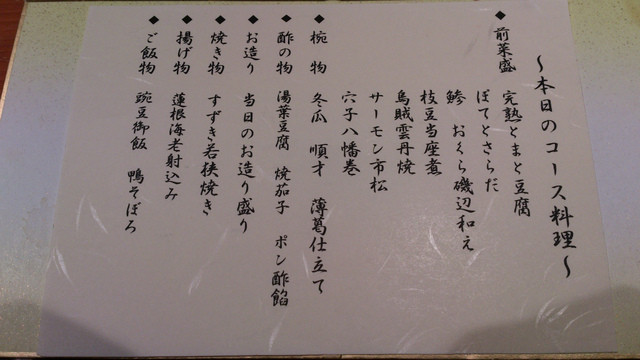 ～本日のコース料理～
◆前菜盛　完熟とまと豆腐
ぽてとさらだ
鯵　おくら磯辺和え
枝豆当座煮
烏賊雲丹焼
サーモン市松
穴子八幡巻
◆椀　物　冬瓜　順才　薄葛仕立て
◆酢の物　湯葉豆腐　焼茄子　ポン酢餡
◆お造り　当日のお造り盛り
◆焼き物　すずき若狭焼き
◆揚げ物　蓮根海老射込み
◆ご飯物　豌豆御飯　鴨そぼろ